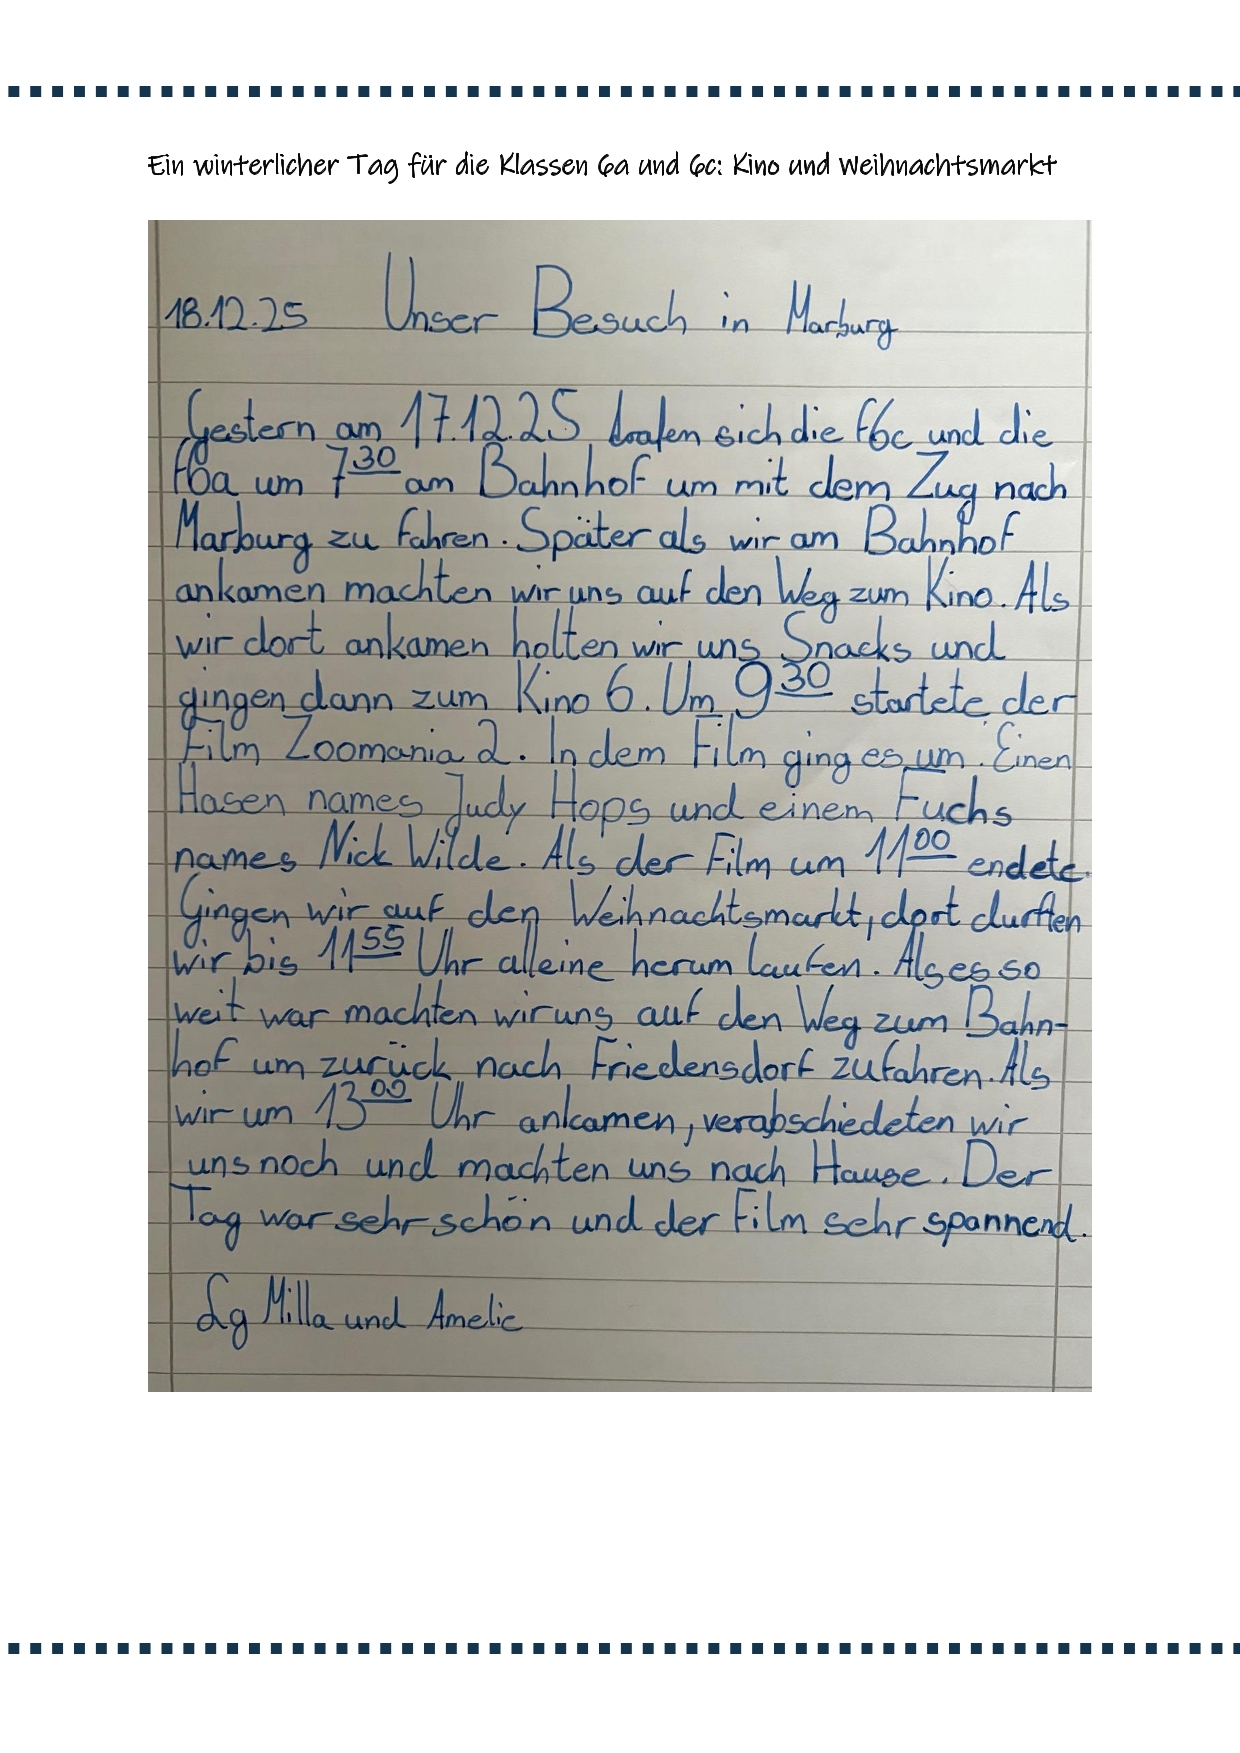 Ein winterlicher Tag für die Klassen 6a und 6c: Kino und Weihnachtsmarkt
18.12.25 Unser Besuch in Marburg
Gestern am 17.12.25 trafen sich die F6c und die
F6a um 7³⁰ am Bahnhof um mit dem Zug nach
Marburg zu fahren. Später als wir am Bahnhof
ankamen machten wir uns auf den Weg zum Kino. Als
wir dort ankamen holten wir uns Snacks und
gingen dann zum Kino 6. Um 9³⁰ startete der
Film Zoomania 2. In dem Film ging es um. Einen
Hasen names Judy Hops und einem Fuchs
names Nick Wilde. Als der Film um 11⁰⁰ endete.
Gingen wir auf den Weihnachtsmarkt, dort durften
wir bis 11⁵⁵ Uhr alleine herum laufen. Als es so
weit war machten wir uns auf den Weg zum Bahn-
hof um zurück nach Friedensdorf zufahren. Als
wir um 13⁰⁰ Uhr ankamen, verabschiedeten wir
uns noch und machten uns nach Hause. Der
Tag war sehr schön und der Film sehr spannend.
Lg Milla und Amelie